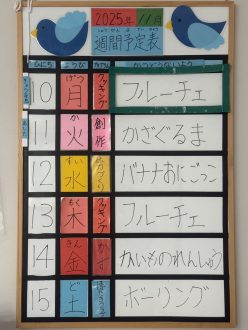 2025年 11月
週間予定表
ひにち ようび かつどうないよう
10 げつ 月 クッキング フルーチェ
11 か 火 創作 かざぐるま
12 すい 水 バナナおにごっこ
13 もく 木 クッキング フルーチェ
14 きん 金 かいものれんしゅう
15 ど 土 ボーリング